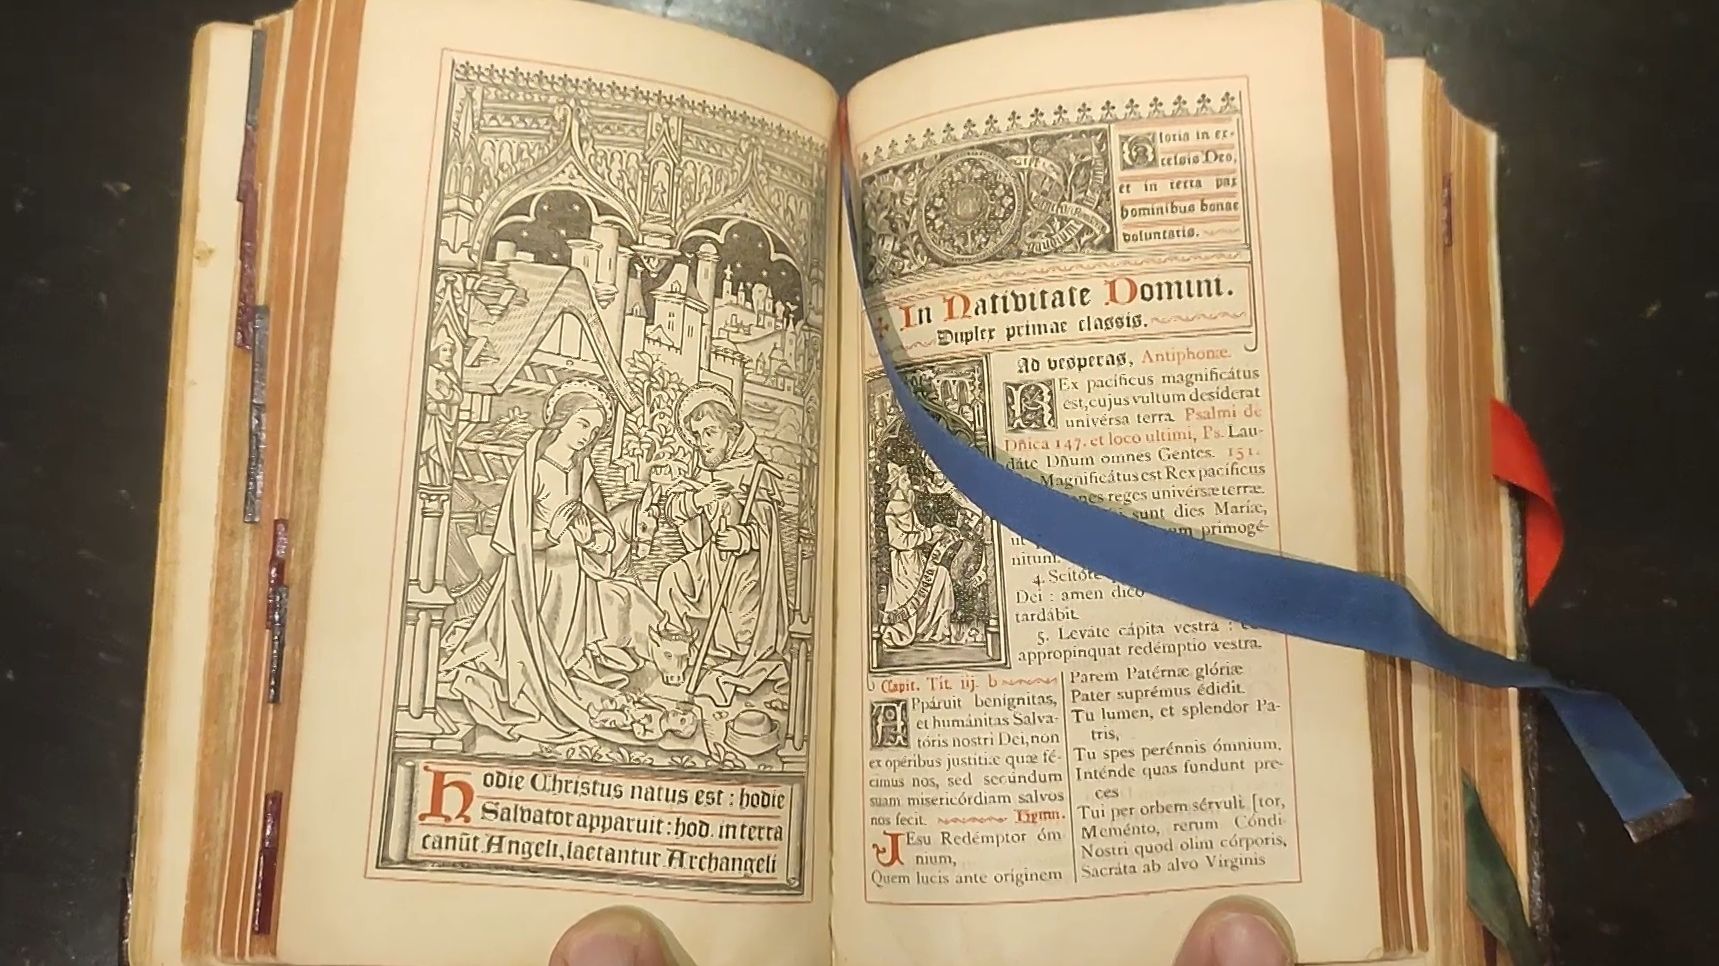 Hodie Christus natus est : hodie
Salvator apparuit : hod. in terra
canūt Angeli, laetantur Archangeli
Gloria in ex-
celsis Deo,
et in terra pax
hominibus bonae
voluntatis.
In Nativitate Domini.
Duplex primae classis.
Ad vesperas, Antiphonæ.
REx pacíficus magnificátus
est, cujus vultum desíderat
univérsa terra. Psalmi de
Dñica 147. et loco ultimi, Ps. Lau-
dáte Dñum omnes Gentes. 151.
Magnificátus est Rex pacíficus
reges univérsæ terræ.
sunt dies Maríæ,
primogé-
nitum.
4. Scitóte
Dei : amen dico
tardábit.
5. Leváte cápita vestra :
appropínquat redémptio vestra.
Capit. Tit. iij. b
APpáruit benígnitas,
et humánitas Salva-
tóris nostri Dei, non
ex opéribus justítiæ quæ fé-
cimus nos, sed secúndum
suam misericórdiam salvos
nos fecit. Hymn.
JEsu Redémptor óm
nium,
Quem lucis ante oríginem
Parem Patérnæ glóriæ
Pater suprémus édidit.
Tu lumen, et splendor Pa-
tris,
Tu spes perénnis ómnium,
Inténde quas fundunt pre-
ces
Tui per orbem sérvuli. [tor,
Meménto, rerum Cóndi-
Nostri quod olim córporis,
Sacráta ab alvo Vírginis